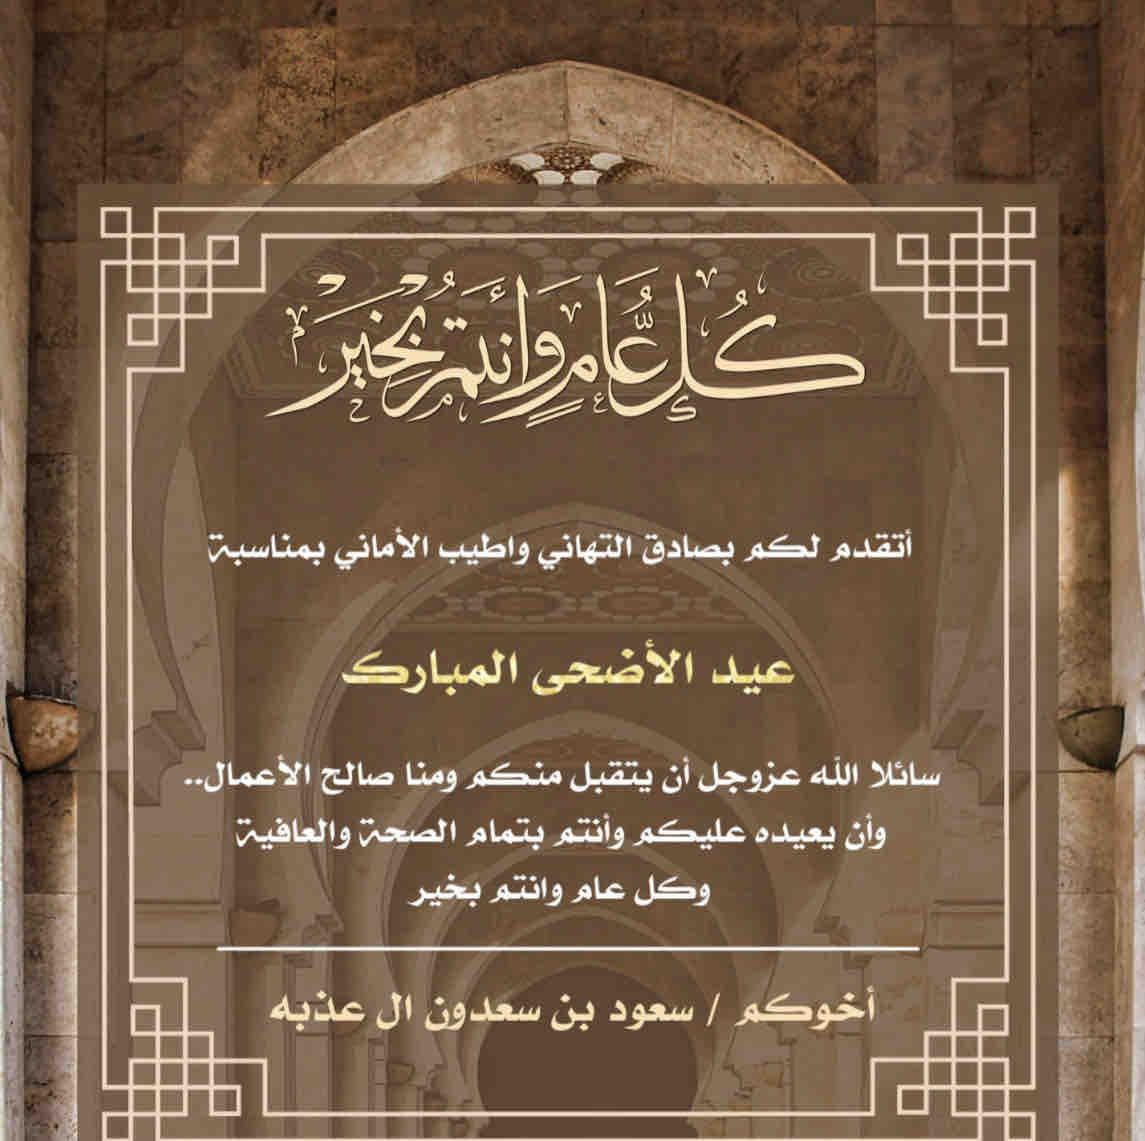 كُل عَّام وَأنتم بخير
أتقدم لكم بصادق التهاني واطيب الأماني بمناسبة
عيد الأضحى المبارك
سائلا الله عزوجل أن يتقبل منكم ومنا صالح الأعمال..
وأن يعيده عليكم وأنتم بتمام الصحة والعافية
وكل عام وانتم بخير
أخوكم / سعود بن سعدون ال عذبه